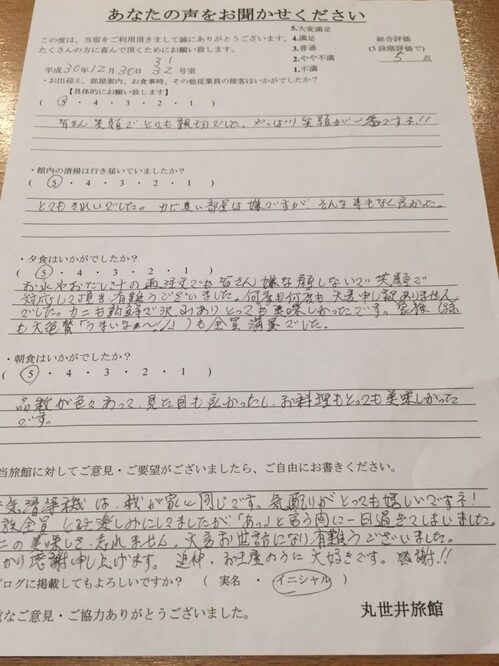 あなたの声をお聞かせください
この度は、当宿をご利用頂きまして誠にありがとうございます。
たくさんの方に喜んで頂くためにお願い致します。
5.大変満足
4.満足
3.普通
2.やや不満
1.不満
総合評価
(5段階評価で)
5 点
平成30年12月30日 31 32 号室
・お出迎え、部屋案内、お食事時、その他従業員の接客はいかがでしたか?
【具体的にお願い致します】
( 5 ・ 4 ・ 3 ・ 2 ・ 1 )
皆さん笑顔でとても親切でした。やっぱり笑顔が一番ですネ!!
・館内の清掃は行き届いていましたか?
( 5 ・ 4 ・ 3 ・ 2 ・ 1 )
とてもきれいでした。カビ臭い部屋は嫌ですが、そんな事もなく良かった。
・夕食はいかがでしたか?
( 5 ・ 4 ・ 3 ・ 2 ・ 1 )
お水やおだし汁の再注文でも皆さん嫌な顔しないで笑顔で
対応して頂き有難うございました。何度も何度も大変申し訳ありません
でした。カニも新鮮で沢山ありとっても美味しかったです。家族
も大絶賛「うまいなぁ〜!!」も全員満足でした。
・朝食はいかがでしたか?
( 5 ・ 4 ・ 3 ・ 2 ・ 1 )
品数が色々あって、見た目も良かったし、お料理もとっても美味しかった
です。
当旅館に対してご意見・ご要望がございましたら、ご自由にお書きください。
空気清浄機は、我が家と同じです。気配りがとっても嬉しいですネ!
全員 楽しみにしてましたが「あっ」と言う間に一日過ぎてしまいました。
の美味しさ、忘れません。大変お世話になり有難うございました。
感謝申し上げます。 大好きです。感謝!!
ブログに掲載してもよろしいですか? ( 実名 ・ イニシャル )
貴重なご意見・ご協力ありがとうございました。
丸世井旅館